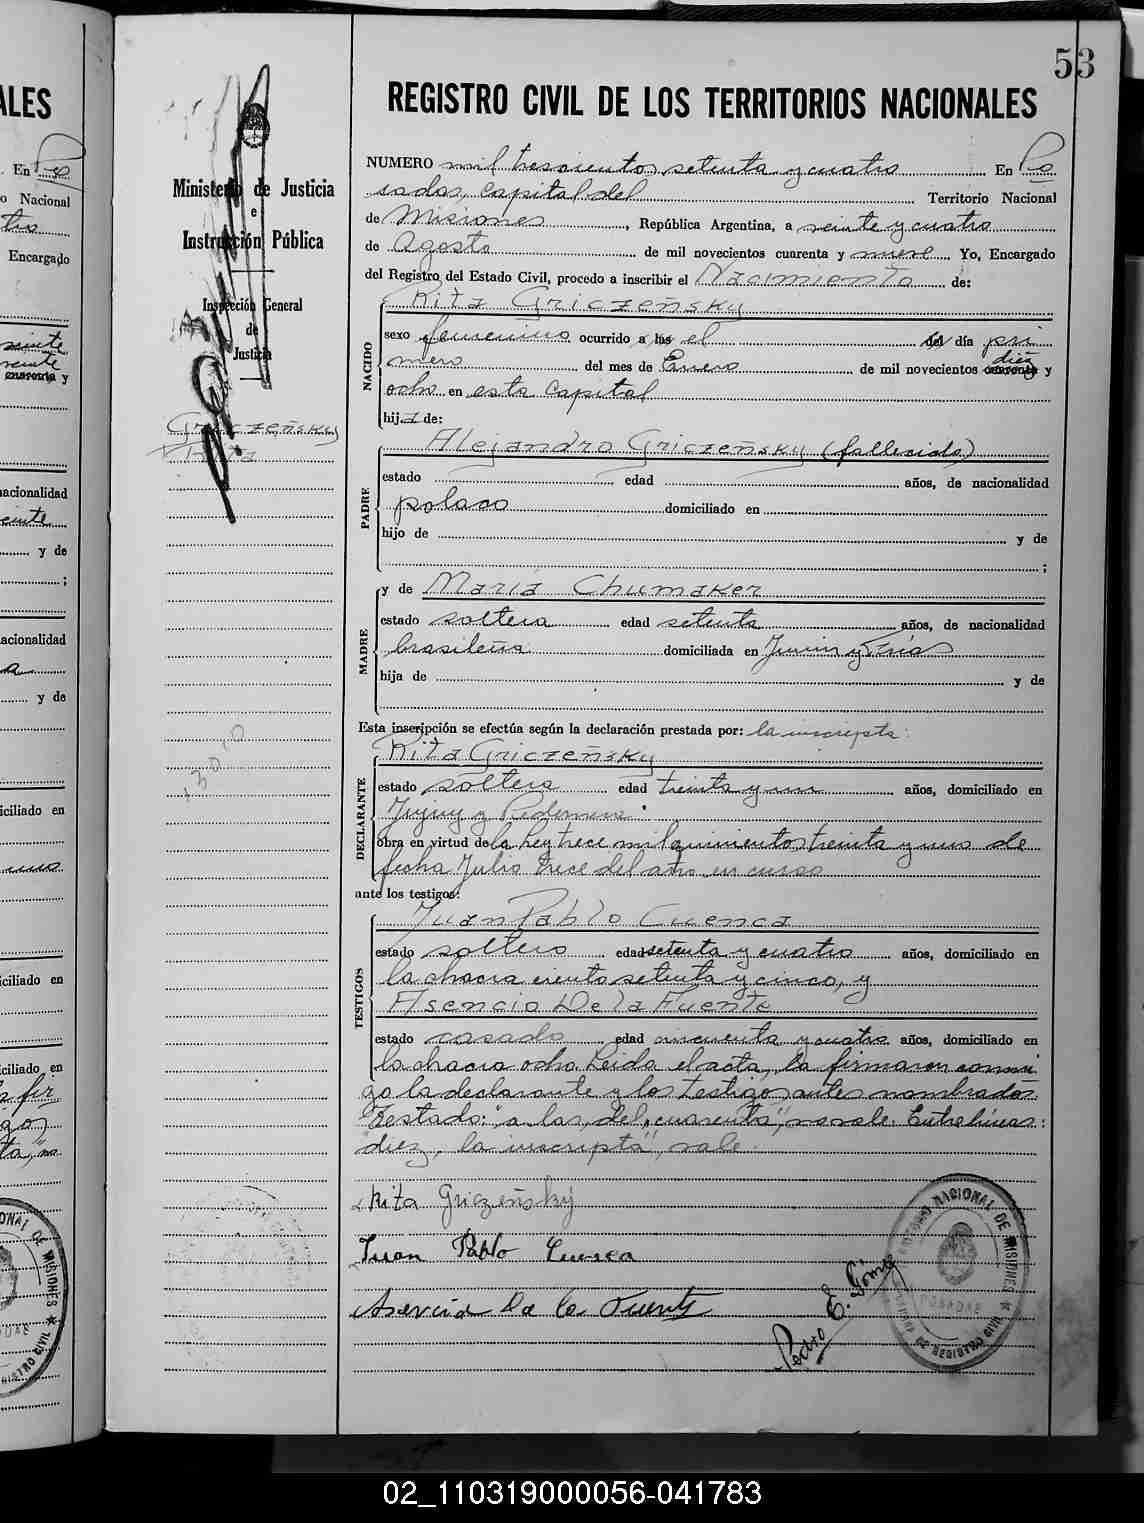 53
REGISTRO CIVIL DE LOS TERRITORIOS NACIONALES
Ministerio de Justicia
e
Instrucción Pública
Inspección General
de
Justicia
Griczeñsky
Rita
NUMERO mil trescientos setenta y cuatro En Po
sadas, capital del Territorio Nacional
de Misiones, República Argentina, a veinte y cuatro
de Agosto de mil novecientos cuarenta y nueve. Yo, Encargado
del Registro del Estado Civil, procedo a inscribir el Nacimiento de:
NACIDO
Rita Griczeñsky
sexo femenino ocurrido a las el del día pri
mero del mes de Enero de mil novecientos cuarenta diez y
ocho en esta capital
hija de:
PADRE
Alejandro Griczeñsky (fallecido)
estado edad años, de nacionalidad
polaco domiciliado en
hijo de y de
;
MADRE
y de María Chumaker
estado soltera edad setenta años, de nacionalidad
brasileña domiciliada en Junin y Frias
hija de y de
Esta inscripción se efectúa según la declaración prestada por: la inscripta:
DECLARANTE
Rita Griczeñsky
estado soltera edad treinta y un años, domiciliado en
Jujuy y
obra en virtud de la Ley trece mil quinientos treinta y uno de
fecha Julio trece del año en curso
ante los testigos:
TESTIGOS
Juan Pablo Cuenca
estado soltero edad setenta y cuatro años, domiciliado en
la chacra ciento setenta y cinco, y
Asencio De la Fuente
estado casado edad cincuenta y cuatro años, domiciliado en
la chacra ocho. Leida el acta, la firmaron conmi
go la declarante y los testigos antes nombrados.
Testado: "a las, del, cuarenta", no vale. Entrelíneas:
"diez, la inscripta", vale
Rita Griczeñský
Juan Pablo Cuenca
Asencio De la Fuente
Pedro E. Gómez
NACIONAL DE MISIONES
POSADAS
REGISTRO CIVIL
02_110319000056-041783